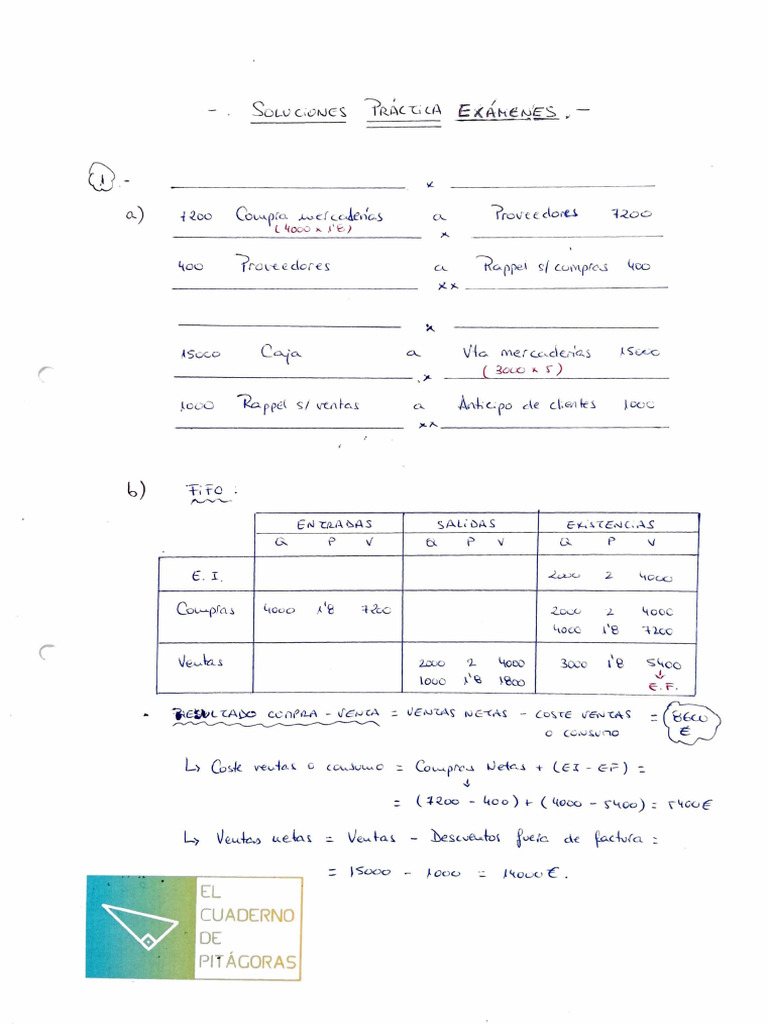 -. SOLUCIONES PRÁCTICA EXÁMENES. -
1 .-
a) 7200 Compra mercaderías a Proveedores 7200
(4000 x 1'8)
400 Proveedores a Rappel s/ compras 400
15000 Caja a Vta mercaderías 15000
(3000 x 5)
1000 Rappel s/ ventas a Anticipo de clientes 1000
b) FIFO:
ENTRADAS SALIDAS EXISTENCIAS
Q P V Q P V Q P V
E. I. 2000 2 4000
Compras 4000 1'8 7200 2000 2 4000
4000 1'8 7200
Ventas 2000 2 4000 3000 1'8 5400
1000 1'8 1800 ↓
E.F.
• RESULTADO COMPRA - VENTA = VENTAS NETAS - COSTE VENTAS = 8600
O CONSUMO €
↳ Coste ventas o consumo = Compras Netas + (EI - EF) =
↓
= (7200 - 400) + (4000 - 5400) = 5400€
↳ Ventas netas = Ventas - Descuentos fuera de factura =
= 15000 - 1000 = 14000€.
EL
CUADERNO
DE
PITÁGORAS